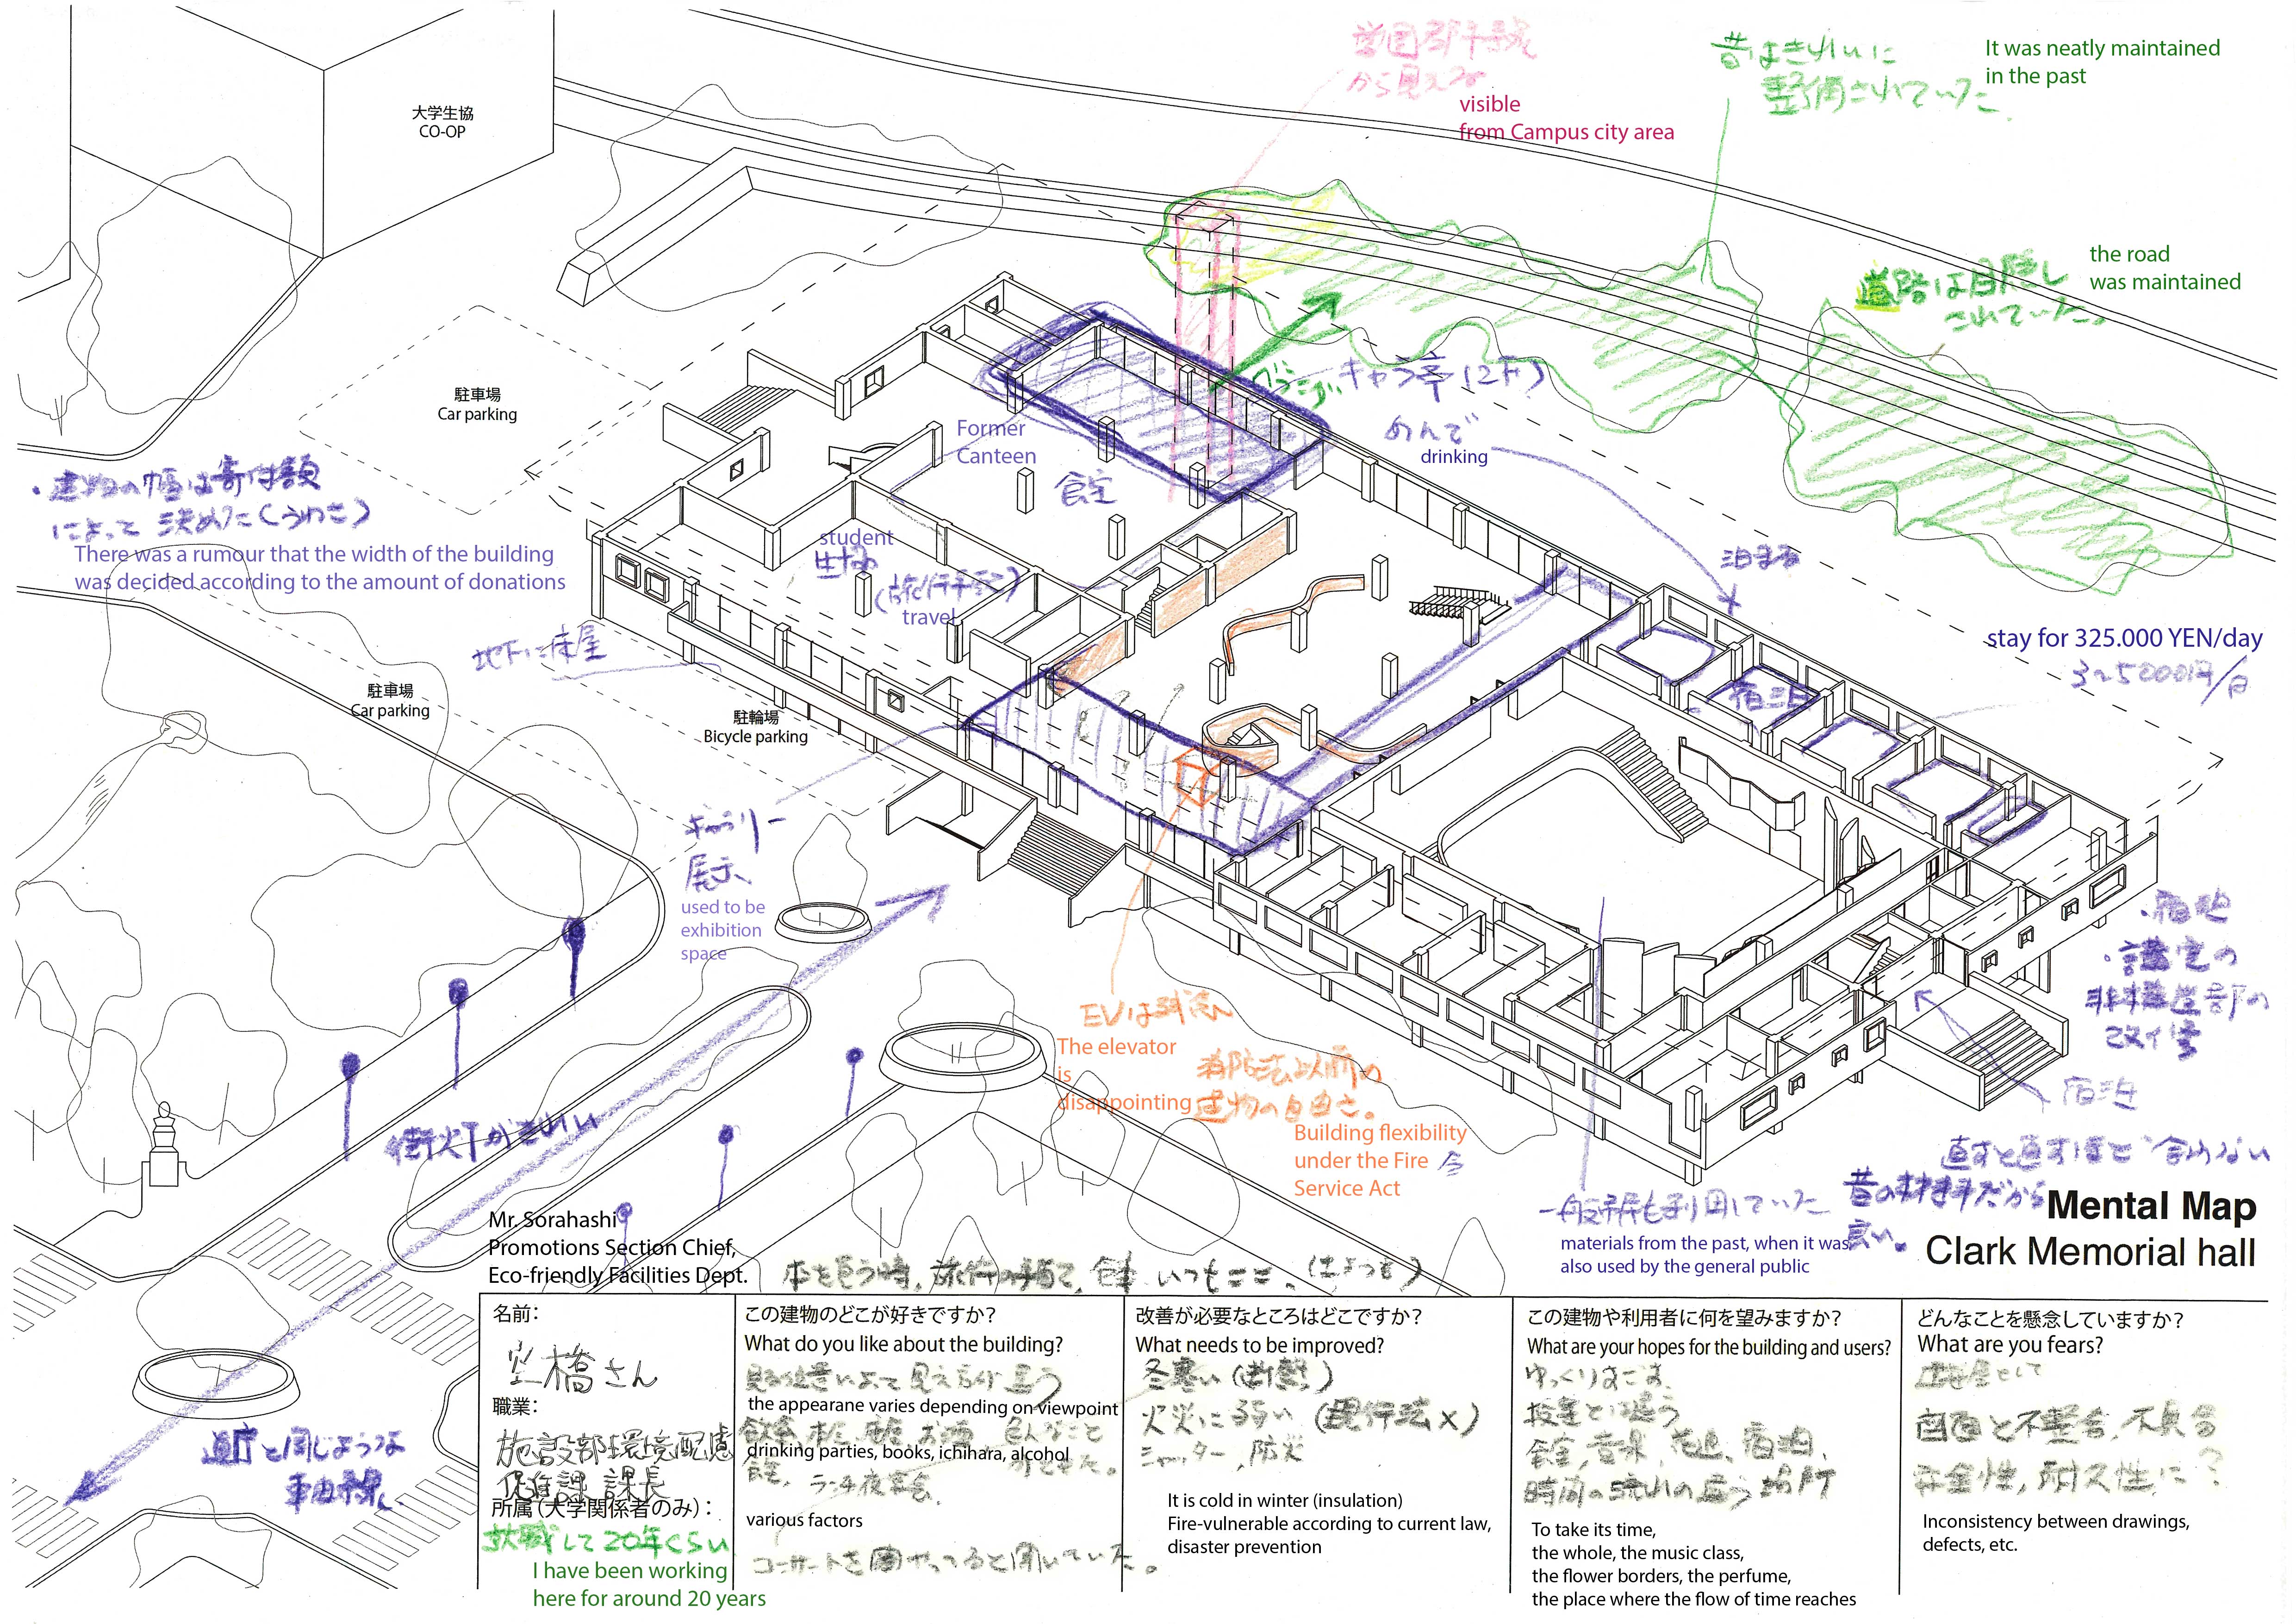 大学生協
CO-OP
から見える
visible
from Campus city area
昔はきれいに
整備されていた
It was neatly maintained
in the past
道路は目隠し
されていた。
the road
was maintained
駐車場
Car parking
Former
Canteen
食堂
キャラ亭(2F)
のんで
drinking
泊まる
・建物の幅は寄付額
によって決めた(うわさ)
There was a rumour that the width of the building
was decided according to the amount of donations
student
生協
travel
地下に床屋
stay for 325.000 YEN/day
3~5000円/日
宿泊
駐車場
Car parking
駐輪場
Bicycle parking
ギャラリー
展示
used to be
exhibition
space
・宿泊
・講堂の
非構造部の
改修
宿泊
EVは残念
The elevator
is
disappointing
消防法以前の
建物の自由さ。
Building flexibility
under the Fire
Service Act
街火丁がきれい
一般市民も利用していた
materials from the past, when it was
also used by the general public
直すと直すほど合わない
昔の材料だから
良い。
Mental Map
Clark Memorial hall
Mr. Sorahashi
Promotions Section Chief,
Eco-friendly Facilities Dept.
本を買う時、旅行の手配で、食事、いつもここ、
道庁と同じような
車回し
名前:
さん
職業:
施設部環境配慮
促進課 課長
所属(大学関係者のみ):
就職して20年くらい
I have been working
here for around 20 years
この建物のどこが好きですか?
What do you like about the building?
見る位置によって見え方が違う
the appearane varies depending on viewpoint
drinking parties, books, ichihara, alcohol
various factors
コンサートを昔やってると聞いていた。
改善が必要なところはどこですか?
What needs to be improved?
冬寒い(断熱)
火災に弱い(現行法×)
シャッター, 防災
It is cold in winter (insulation)
Fire-vulnerable according to current law,
disaster prevention
この建物や利用者に何を望みますか?
What are your hopes for the building and users?
ゆっくりすごす、
教室とは違う
食堂, 音楽, 宿泊,
時間の流れの違う場所
To take its time,
the whole, the music class,
the flower borders, the perfume,
the place where the flow of time reaches
どんなことを懸念していますか?
What are you fears?
図面と不整合, 不具合
安全性, 耐久性に?
Inconsistency between drawings,
defects, etc.